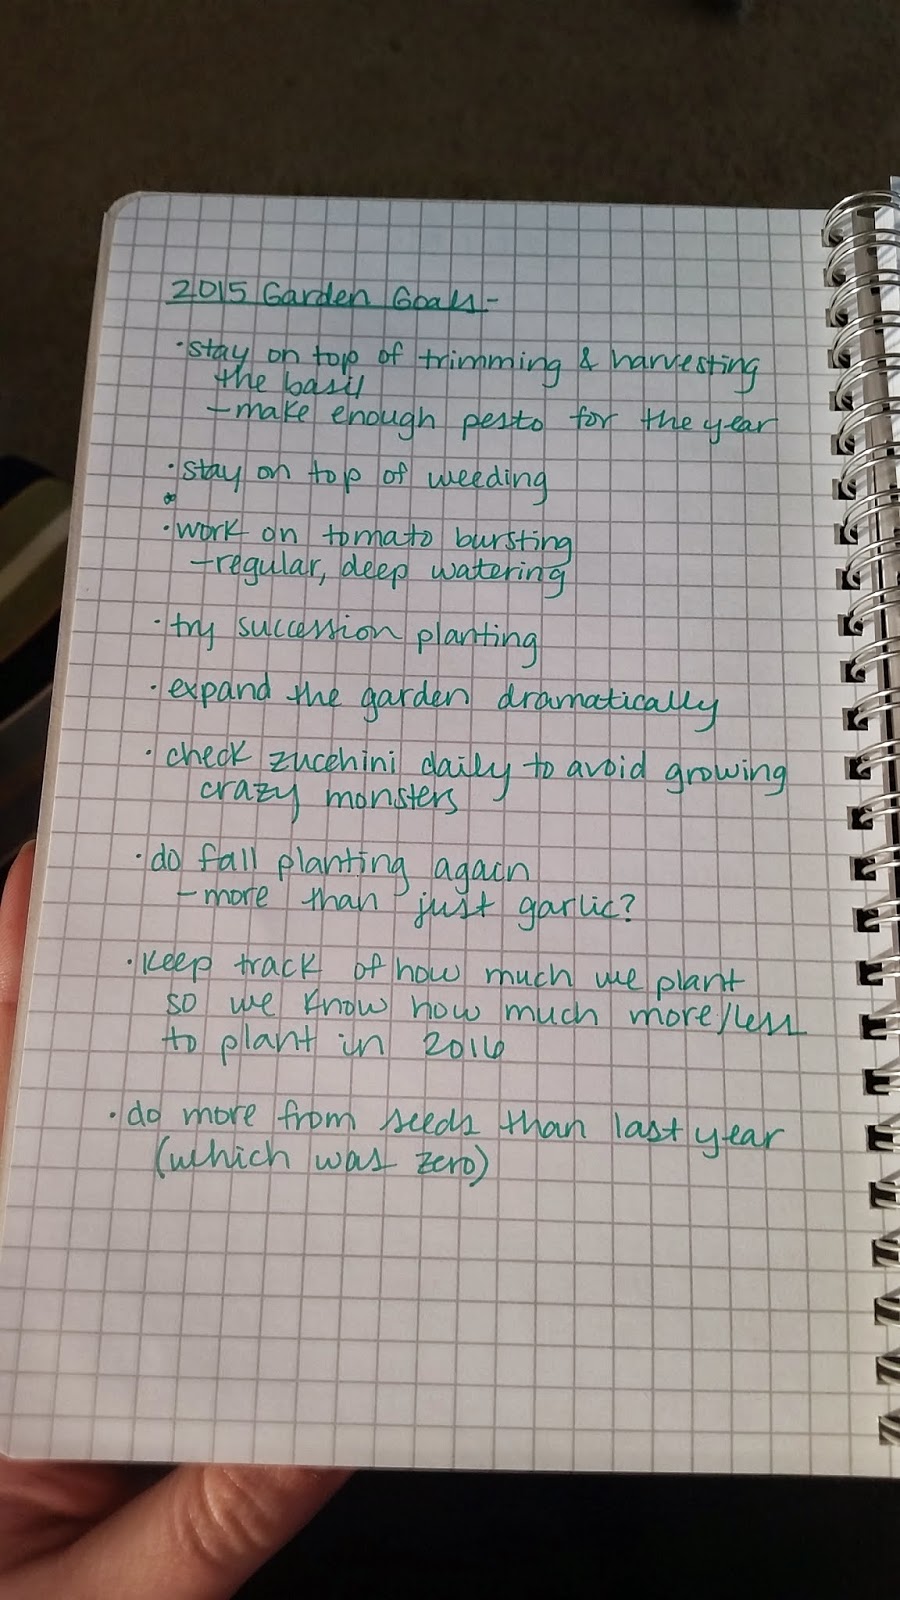 2015 Garden Goals-
·stay on top of trimming & harvesting
the basil
-make enough pesto for the year
·stay on top of weeding
·work on tomato bursting
-regular, deep watering
·try succession planting
·expand the garden dramatically
·check zucchini daily to avoid growing
crazy monsters
·do fall planting again
-more than just garlic?
·keep track of how much we plant
so we know how much more/less
to plant in 2016
·do more from seeds than last year
(which was zero)